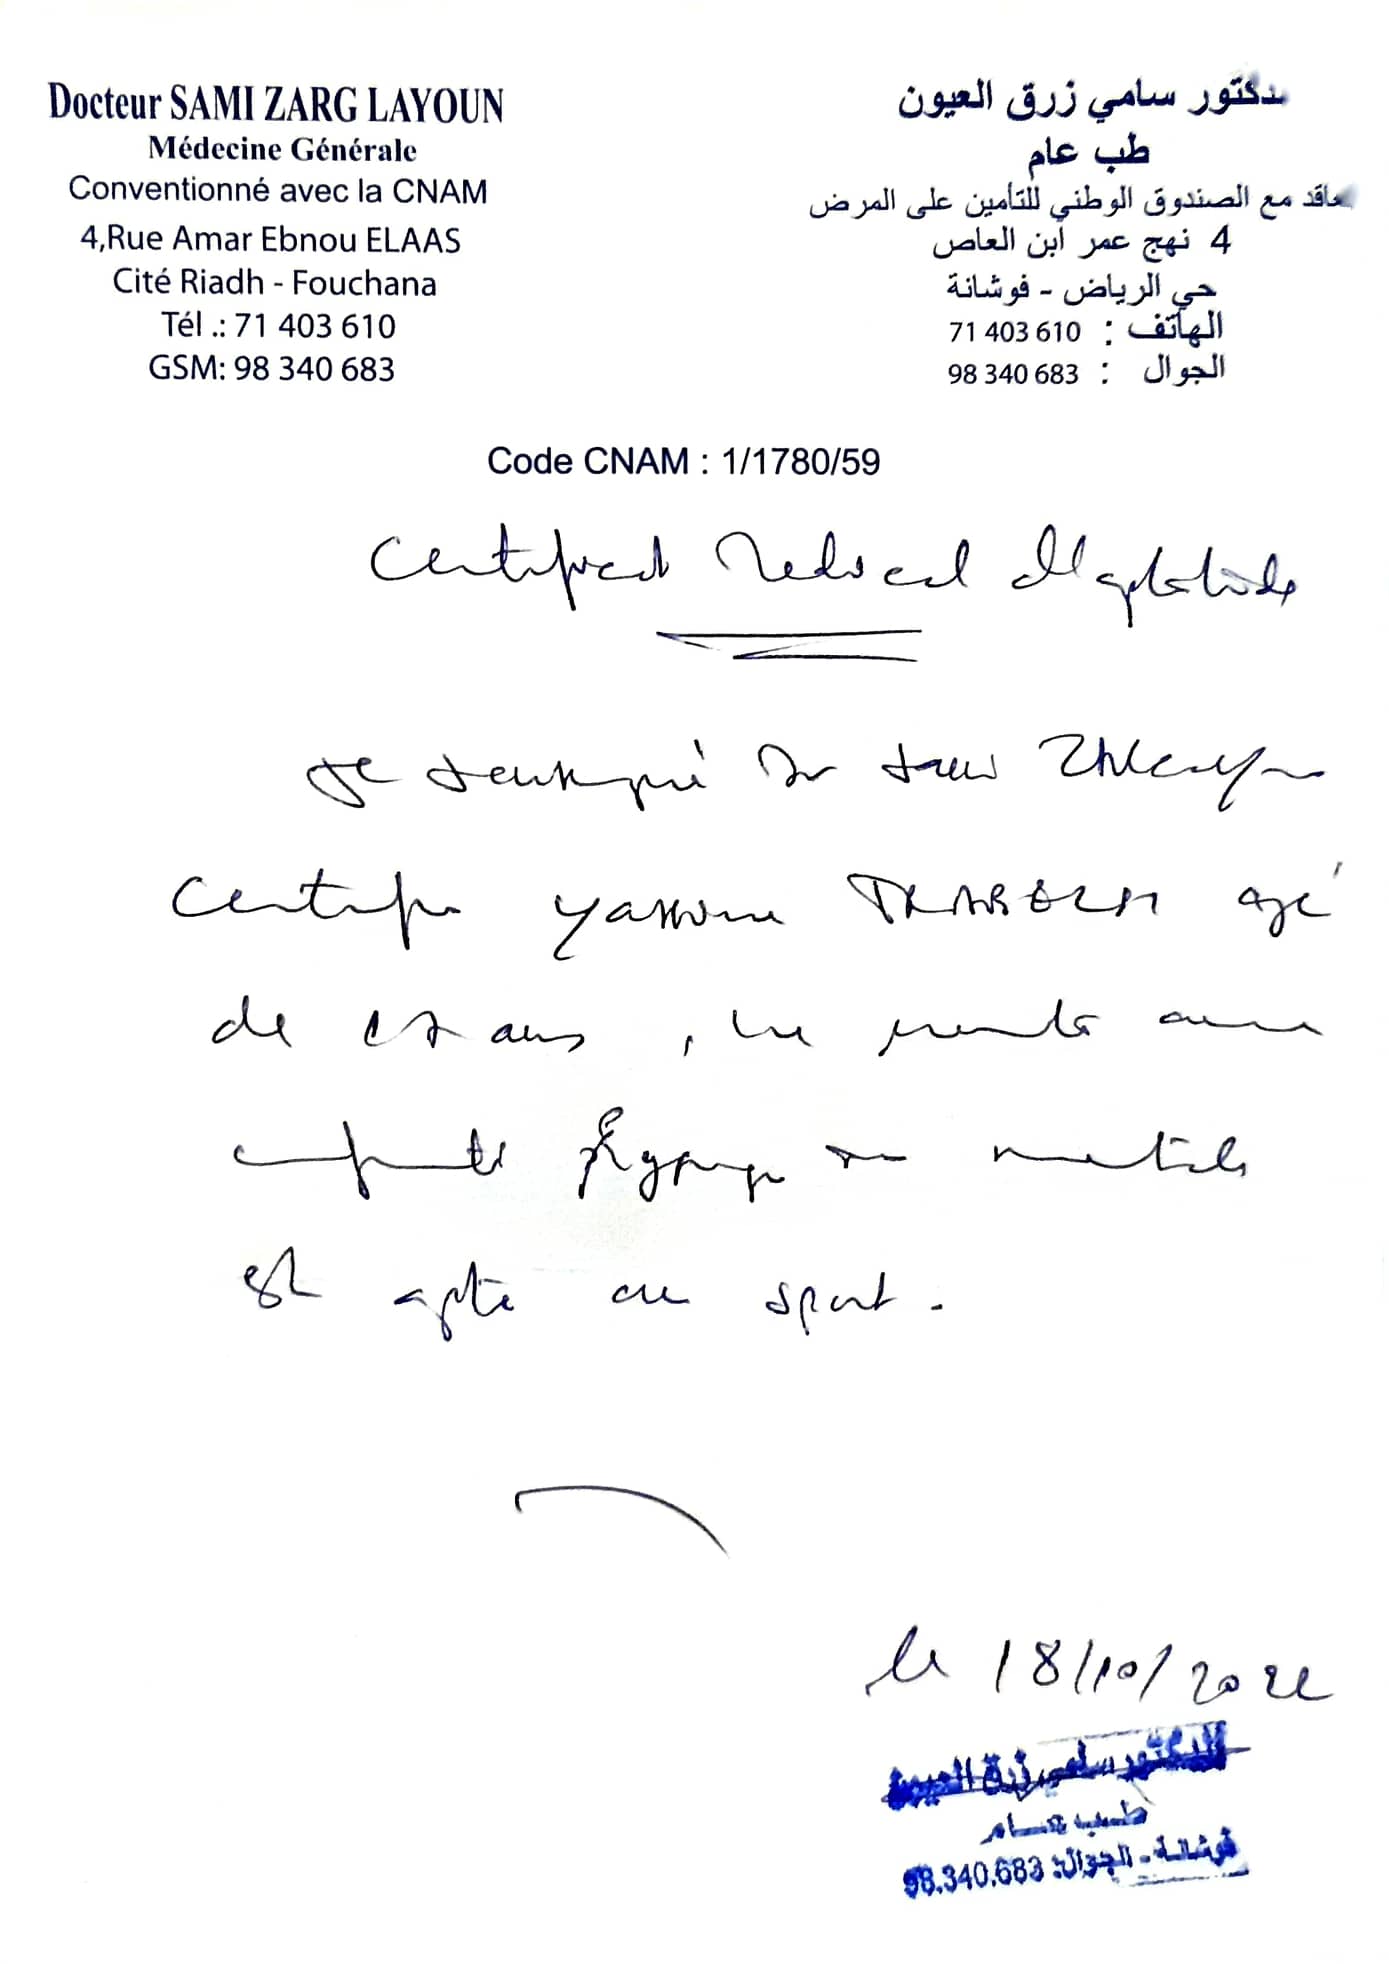 Docteur SAMI ZARG LAYOUN
Médecine Générale
Conventionné avec la CNAM
4,Rue Amar Ebnou ELAAS
Cité Riadh - Fouchana
Tél .: 71 403 610
GSM: 98 340 683
دكتور سامي زرق العيون
طب عام
عاقد مع الصندوق الوطني للتأمين على المرض
4 نهج عمر ابن العاص
حي الرياض - فوشانة
الهاتف : 71 403 610
الجوال : 98 340 683
Code CNAM : 1/1780/59
Certificat Medical d'aptitude
Je soussigné Dr Sami
Certifie Yassine âgé
de 17 ans, ne
physique ou mentale
est apte au sport.
le 18/10/2022
الدكتور سامي زرق العيون
طب عام
فوشانة - الجوال: 98.340.683